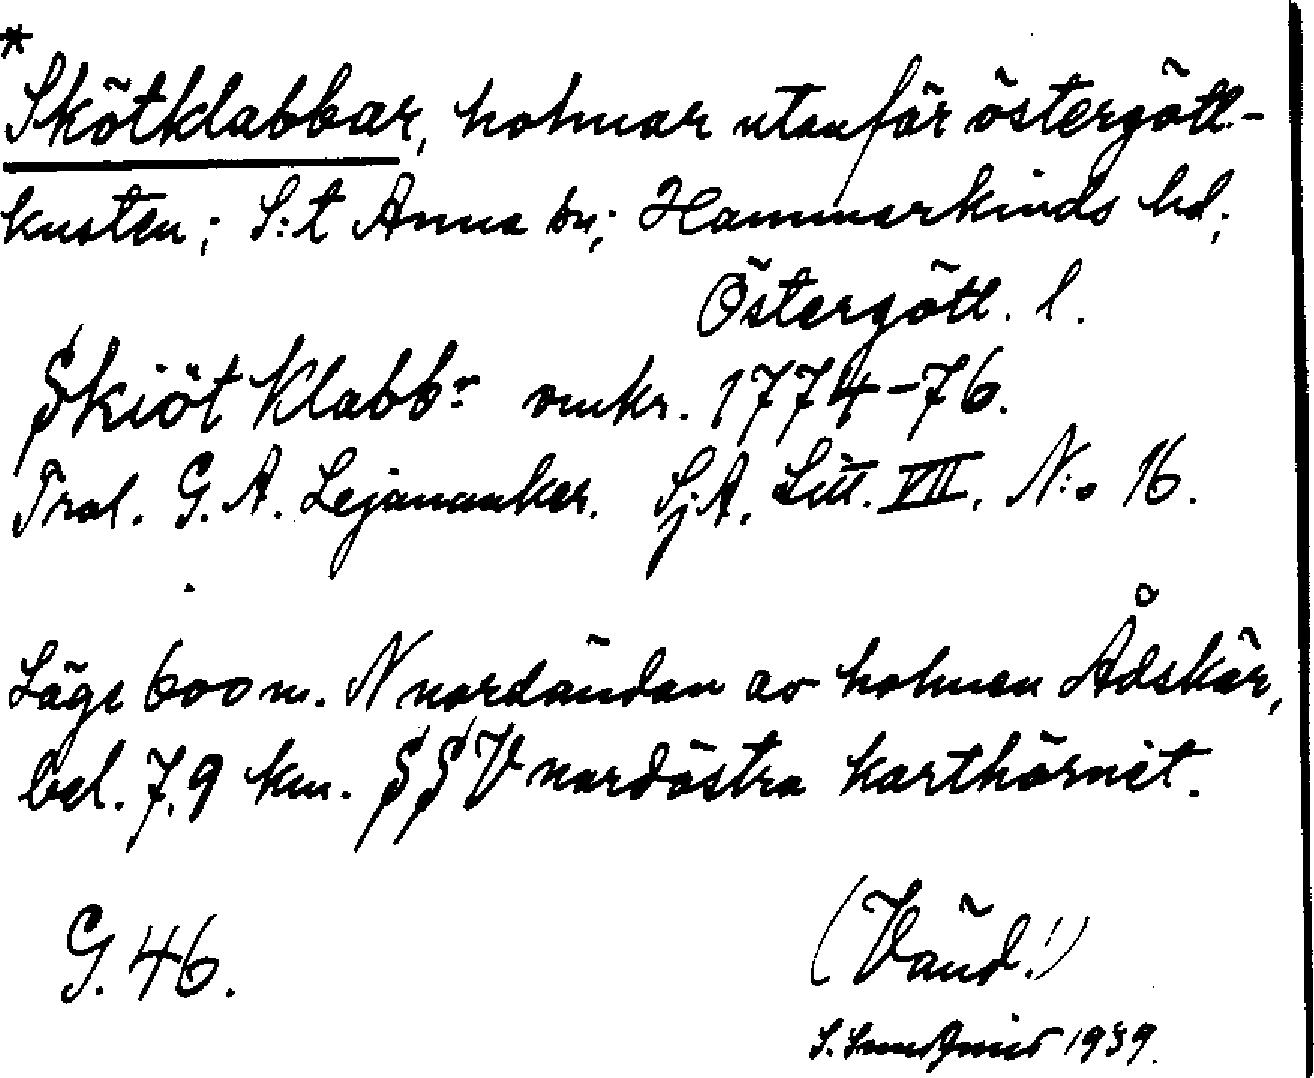 *
Skötklabbar, holmar utanför östergötl.-
kusten; S:t Anna sn; Hammarkinds hd;
Östergötl. l.
Skiöt Klabb:r omkr. 1774-76.
Trol. G. A. Lejonanker. Sj.A. Litt. VII. N:o 16.
Läge 600 m. N nordändan av holmen Ådskär,
bel. 7,9 km. SSV nordöstra karthörnet.
G. 46.
(Vänd!)
S. 1939.